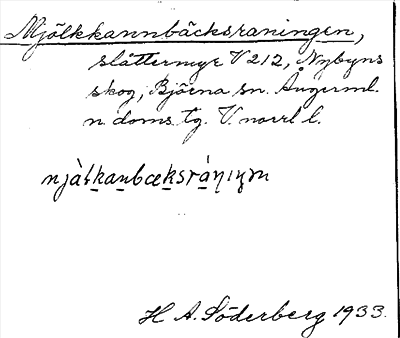 Mjölkkannbäcksraningen,
slåttermyr V 212, Nybyns
skog, Björna sn. Ångerml.
n doms. tg. V. norrl l.
H A. Söderberg 1933.